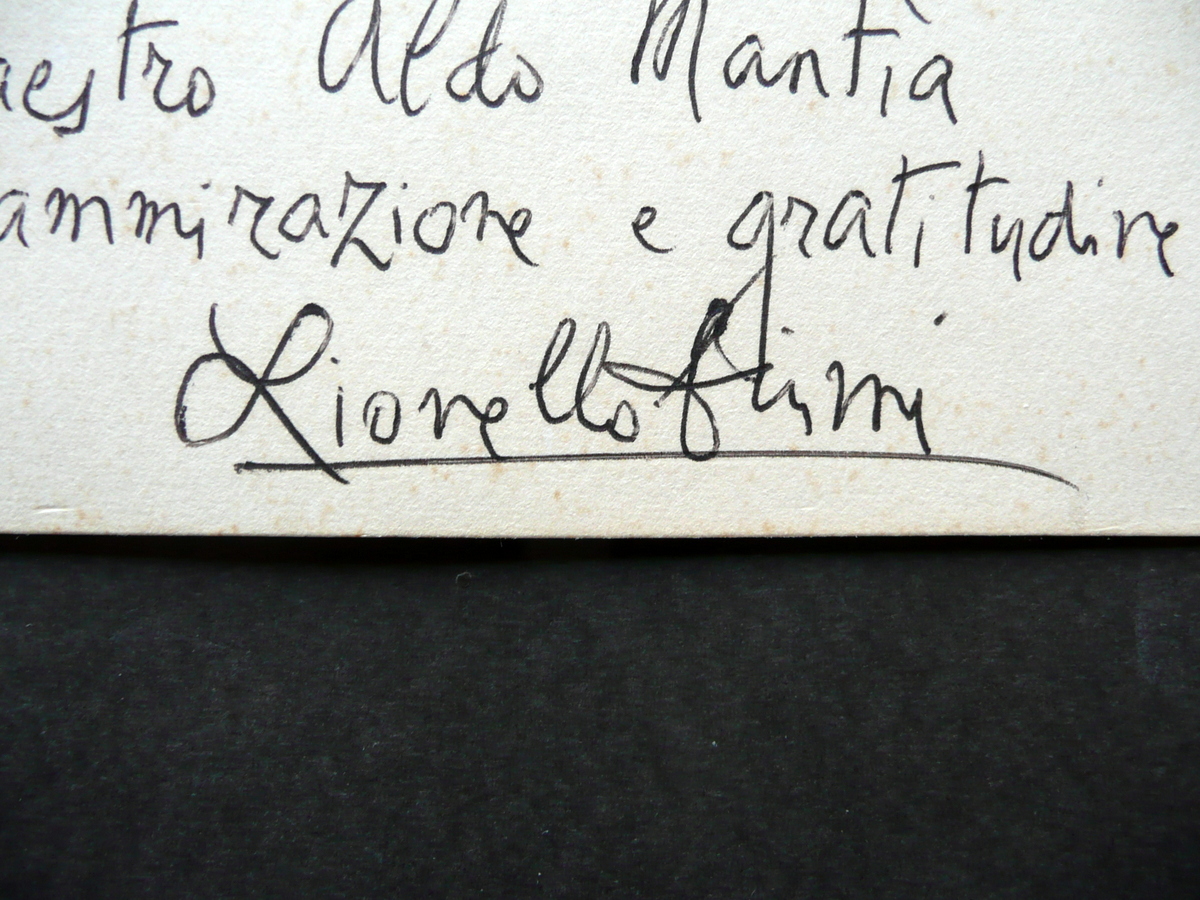 aestro Aldo Mantìa
ammirazione e gratitudine
Lionello Fiumi